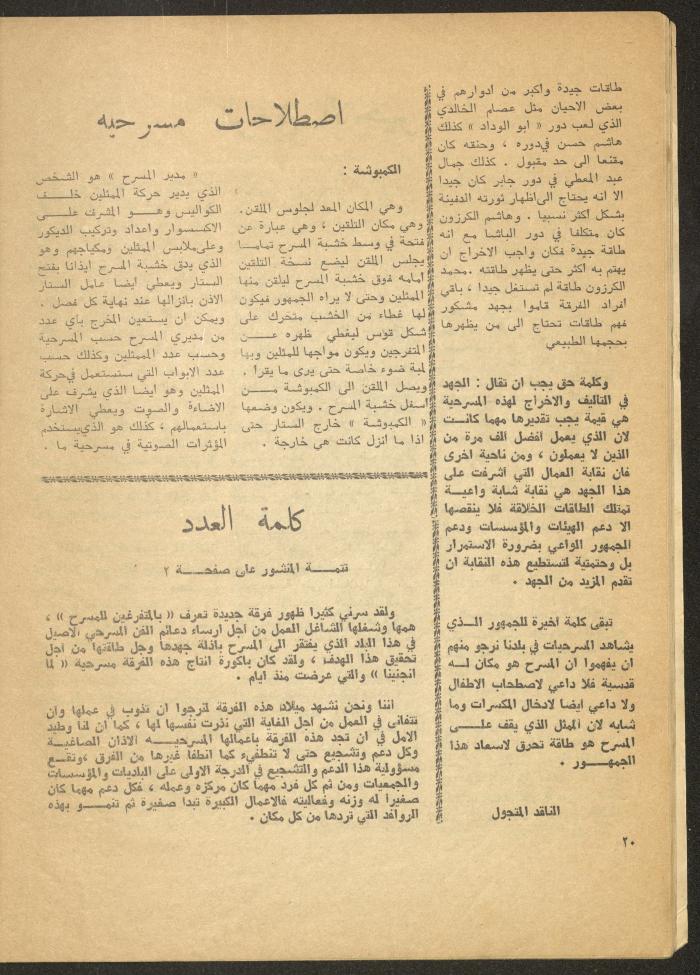 طاقات جيدة واكبر من ادوارهم في
بعض الاحيان مثل عصام الخالدي
الذي لعب دور « ابو الوداد » كذلك
هاشم حسن في دوره ، وحنقه كان
مقنعا الى حد مقبول . كذلك جمال
عبد المعطي في دور جابر كان جيدا
الا انه يحتاج الى اظهار ثورته الدفينة
بشكل أكثر نسبيا . وهاشم الكرزون
كان متكلفا في دور الباشا مع انه
طاقة جيدة فكان واجب الاخراج ان
يهتم به اكثر حتى يظهر طاقته .محمد
الكرزون طاقة لم تستغل جيدا ، باقي
أفراد الفرقة قاموا بجهد مشكور
فهم طاقات تحتاج الى من يظهرها
بحجمها الطبيعي
وكلمة حق يجب ان تقال : الجهد
في التاليف والاخراج لهذه المسرحية
هي قيمة يجب تقديرها مهما كانت
لان الذي يعمل أفضل ألف مرة من
الذين لا يعملون ، ومن ناحية اخرى
فان نقابة العمال التي أشرفت على
هذا الجهد هي نقابة شابة واعية
تمتلك الطاقات الخلاقة فلا ينقصها
الا دعم الهيئات والمؤسسات ودعم
الجمهور الواعي بضرورة الاستمرار
بل وحتمية لتستطيع هذه النقابة ان
تقدم المزيد من الجهد .
تبقى كلمة أخيرة للجمهور الذي
يشاهد المسرحيات في بلدنا نرجو منهم
ان يفهموا ان المسرح هو مكان له
قدسية فلا داعي لاصطحاب الاطفال
ولا داعي ايضا لادخال المكسرات وما
شابه لان الممثل الذي يقف على
المسرح هو طاقة تحرق لاسعاد هذا
الجمهور .
الناقد المتجول
اصطلاحات مسرحيه
الكمبوشة :
وهي المكان المعد لجلوس الملقن.
وهي مكان التلقين ، وهي عبارة عن
فتحة في وسط خشبة المسرح تماما
يجلس الملقن ليضع نسخة التلقين
أمامه فوق خشبة المسرح ليلقن منها
الممثلين وحتى لا يراه الجمهور فيكون
لها غطاء من الخشب متحرك على
شكل قوس ليغطي ظهره عن
المتفرجين ويكون مواجها للمثلين وبها
لمبة ضوء خاصة حتى يرى ما يقرا .
ويصل الملقن الى الكمبوشة من
اسفل خشبة المسرح . ويكون وضعها
« الكمبوشة » خارج الستار حتى
اذا ما انزل كانت هي خارجة .
« مدير المسرح » هو الشخص
الذي يدير حركة الممثلين خلف
الكواليس وهو المشرف على
الاكسسوار واعداد وتركيب الديكور
وعلى ملابس الممثلين ومكياجهم وهو
الذي يدق خشبة المسرح ايذانا بفتح
الستار ويعطي أيضا عامل الستار
الاذن بانزالها عند نهاية كل فصل .
ويمكن ان يستعين المخرج باي عدد
من مديري المسرح حسب المسرحية
وحسب عدد الممثلين وكذلك حسب
عدد الابواب التي ستستعمل في حركة
الممثلين وهو ايضا الذي يشرف على
الاضاءة والصوت ويعطي الاشارة
باستعمالهم ، كذلك هو الذي يستخدم
المؤثرات الصوتية في مسرحية ما .
كلمة العدد
تتمة المنشور على صفحة ٢
ولقد سرني كثيرا ظهور فرقة جديدة تعرف « بالمتفرغين للمسرح » ،
همها وشغلها الشاغل العمل من أجل ارساء دعائم الفن المسرحي الاصيل
في هذا البلد الذي يفتقر الى المسرح باذلة جهدها وجل طاقتها من أجل
تحقيق هذا الهدف ، ولقد كان باكورة انتاج هذه الفرقة مسرحية « لما
انجنينا » والتي عرضت منذ ايام .
اننا ونحن نشهد ميلاد هذه الفرقة لنرجوا ان تذوب في عملها وان
تتفانى في العمل من أجل الغاية التي نذرت نفسها لها ، كما ان لنا وطيد
الامل في أن تجد هذه الفرقة باعمالها المسرحيه الاذان الصاغية
وكل دعم وتشجيع حتى لا تنطفيء كما انطفا غيرها من الفرق ،وتقع
مسؤولية هذا الدعم والتشجيع في الدرجة الاولى على البلديات والمؤسسات
والجمعيات ومن ثم كل فرد مهما كان مركزه وعمله ، فكل دعم مهما كان
صغيرا له وزنه وفعاليته فالاعمال الكبيرة تبدا صغيرة ثم تنمو بهذه
الروافد التي تردها من كل مكان .
٢٠